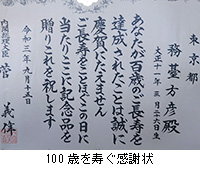 東京都
務臺方彦殿
大正十一年三月二六日生
あなたが百歳のご長寿を
達成されたことは誠に
慶賀にたえません
ご長寿をことほぐこの日に
当たりここに記念品を
贈りこれを祝します
令和三年九月十五日
内閣総理大臣 菅 義偉
100歳を寿ぐ感謝状